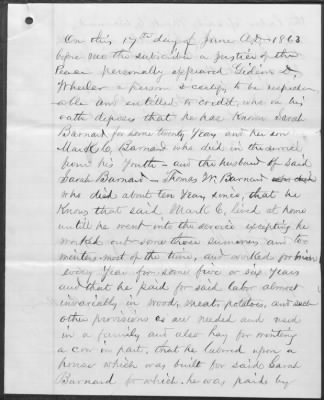 On this 17th day of June A.D. 1863
before me the subscriber a Justice of the
Peace personally appeared Gideon D.
Wheeler a person I certify to be respect
able and entitled to credit, who on his
oath deposes that he has Known Sarah
Barnard for some twenty Years and her son
Mark C. Barnard who died in the service
from his Youth - and the husband of said
Sarah Barnard - Thomas W. Barnard
who died about ten Years since, that he
Knows that said Mark C. lived at home
untill he went into the service excepting he
worked out some three summers and two
winters most of the time, and worked for
every Year for some five or six Years
and that he paid for said labor almost
invariably in wood, meat, potatoes, and such
other provisions as are needed and used
in a family and also hay for wintering
a cow in part, that he labored upon a
house which was built for said Sarah
Barnard for which he was paid by